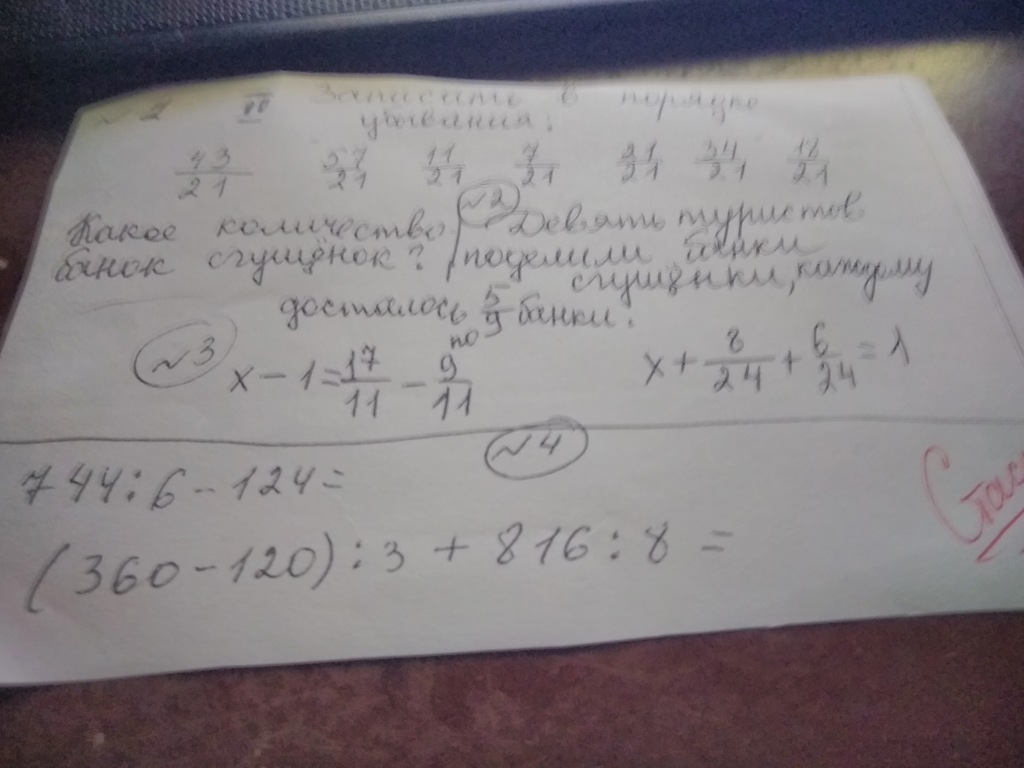 № 2 III Запишите в порядке
убывания:
43/21 57/21 11/21 7/21 21/21 34/21 18/21
Какое количество №2 Девять туристов
банок сгущёнок? поделили банки
сгущёнки, каждому
досталось 5/9 банки.
по
№3 x - 1 = 17/11 - 9/11 x + 8/24 + 6/24 = 1
№4
744 : 6 - 124 =
(360 - 120) : 3 + 816 : 8 =